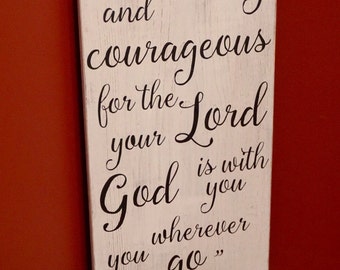 and
courageous
for the
your Lord
God is with
you
you wherever
go ”